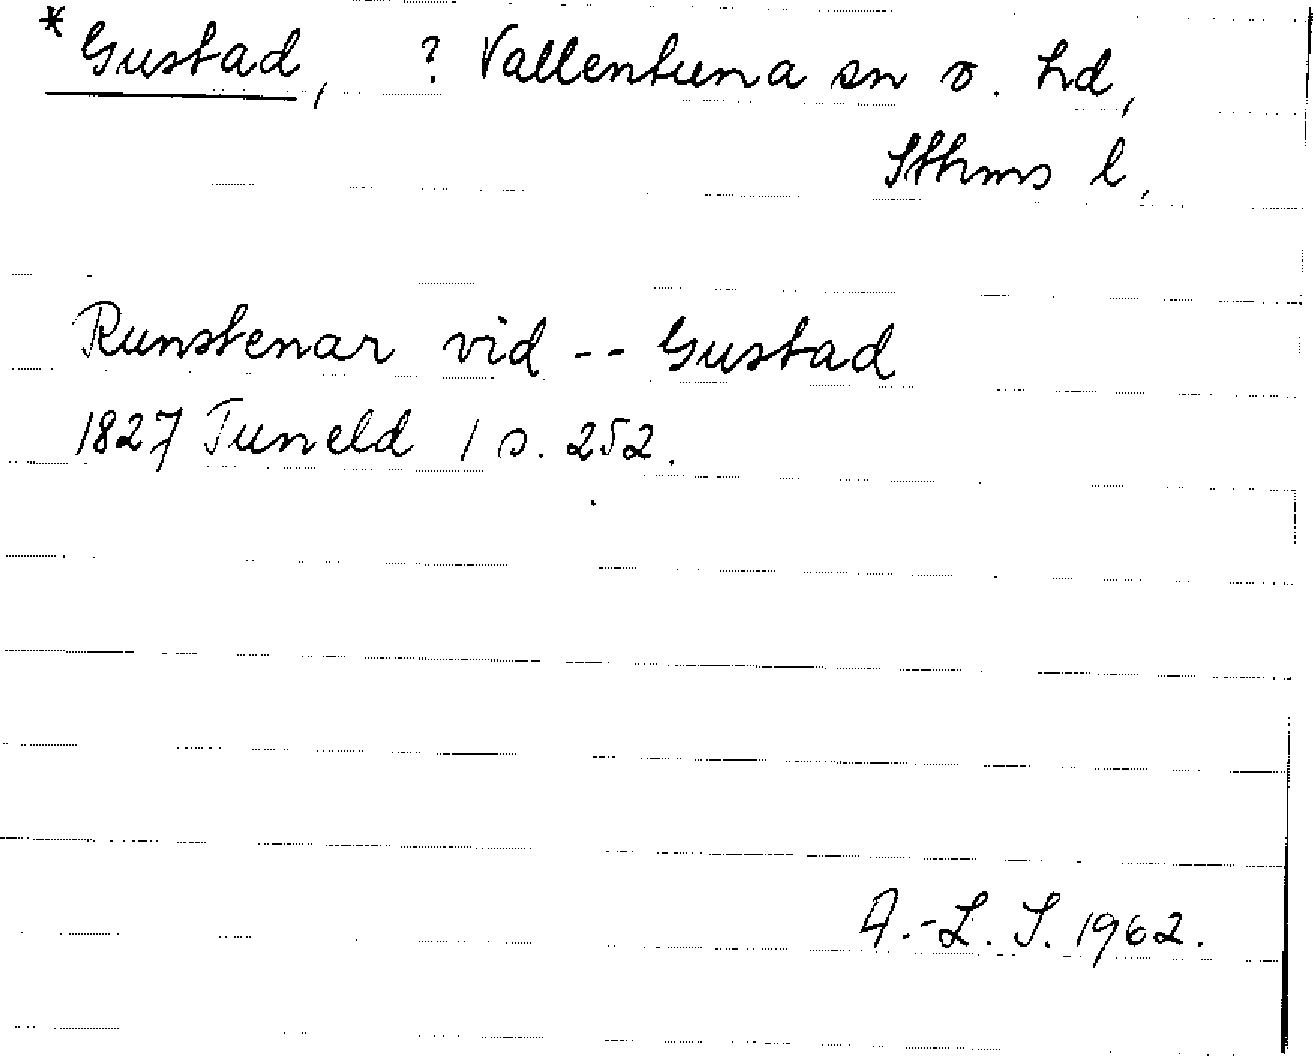 *Gustad, ? Vallentuna sn o. hd,
Sthms l.
Runstenar vid -- Gustad
1827 Tuneld 1 s. 252.
A.-L. S. 1962.